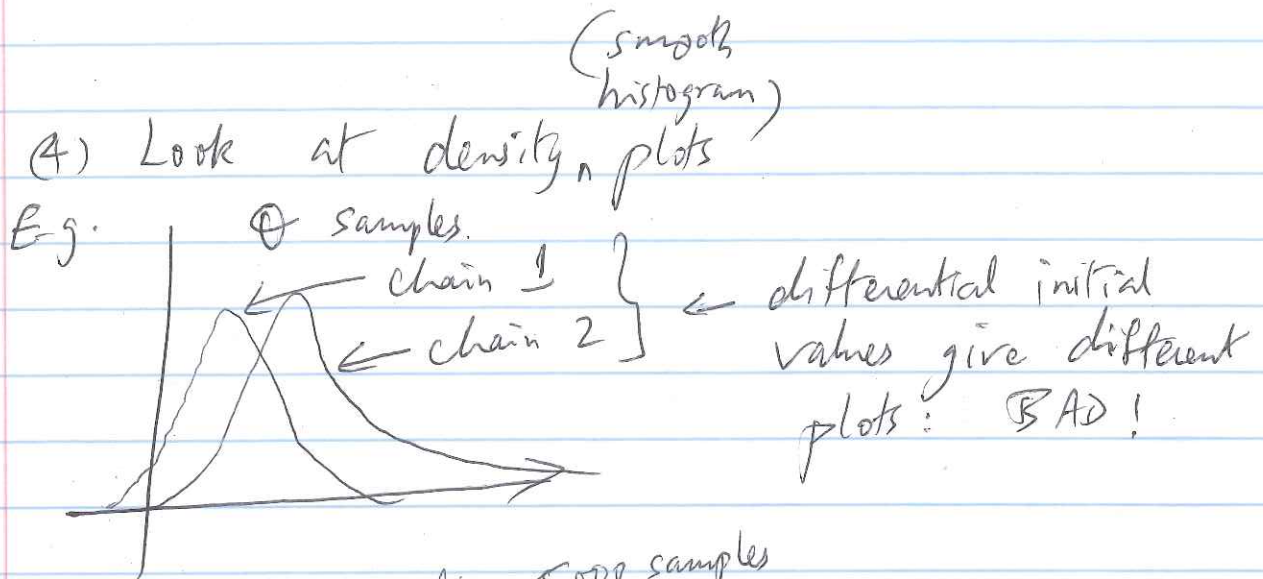 (smooth
histogram)
(4) Look at density plots
E.g. θ samples.
chain 1
chain 2
← differential initial
values give different
plots: BAD!
samples